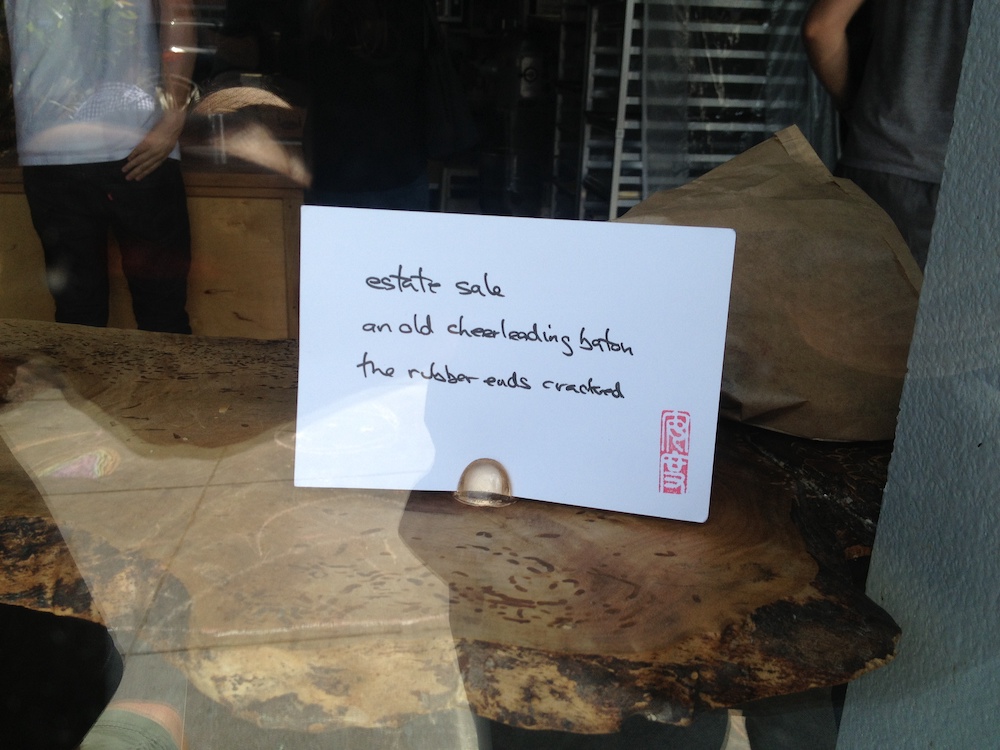 estate sale
an old cheerleading baton
the rubber ends cracked